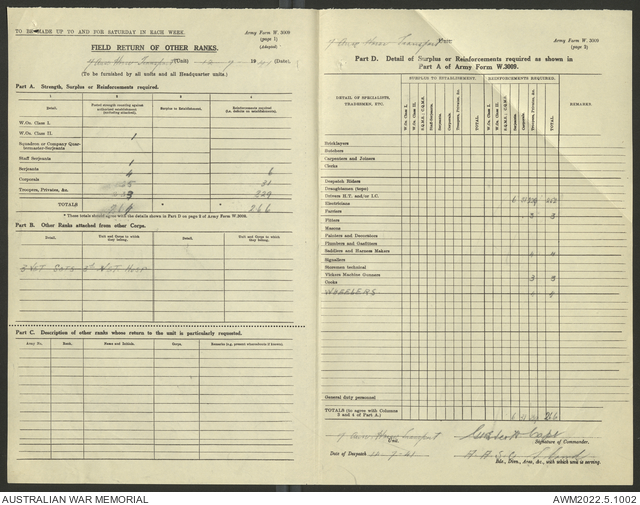 TO BE MADE UP TO AND FOR SATURDAY IN EACH WEEK.
Army Form W. 3009
(page 1)
(Adapted)
FIELD RETURN OF OTHER RANKS.
Transport (Unit) 12 - 7 - 1941 (Date)
(To be furnished by all units and all Headquarter units.)
Part A. Strength, Surplus or Reinforcements required.
1 2 3 4
Detail. Posted strength counting against authorized establishment (including attached). Surplus to Establishment. Reinforcements required (i.e. deficits on establishment).
W.Os. Class I.
W.Os. Class II. 1
Squadron or Company Quarter-master-Serjeants
Staff Serjeants 1
Serjeants 4 6
Corporals 31
Troopers, Privates, &c. 229
TOTALS * * 266
* These totals should agree with the details shown in Part D on page 2 of Army Form W.3009.
Part B. Other Ranks attached from other Corps.
Detail. Unit and Corps to which they belong. Detail. Unit and Corps to which they belong.
Part C. Description of other ranks whose return to the unit is particularly requested.
Army No. Rank. Name and Initials. Corps. Remarks (e.g. present whereabouts if known).
Transport Unit.
Army Form W. 3009
(page 2)
Part D. Detail of Surplus or Reinforcements required as shown in
Part A of Army Form W.3009.
DETAIL OF SPECIALISTS, TRADESMEN, ETC.
SURPLUS TO ESTABLISHMENT. REINFORCEMENTS REQUIRED.
W.Os. Class I. W.Os. Class II. S.Q.M.S.; C.Q.M.S. Staff-Serjeants. Serjeants. Corporals. Troopers, Privates, &c. TOTAL. W.Os. Class I. W.Os. Class II. S.Q.M.S.; C.Q.M.S. Serjeants. Corporals. Troopers, Privates, &c. TOTAL. REMARKS.
Bricklayers
Butchers
Carpenters and Joiners
Clerks
Despatch Riders
Draughtsmen (topo)
Drivers H.T. and/or I.C.
Electricians
Farriers 3 3
Fitters
Masons
Painters and Decorators
Plumbers and Gasfitters
Saddlers and Harness Makers 4 4
Signallers
Storemen technical
Vickers Machine Gunners
Cooks 3 3
WHEELERS 4 4
General duty personnel
TOTALS (to agree with Columns 3 and 4 of Part A.) 6 31 229 266
Transport Unit.
Capt
Signature of Commander.
Date of Despatch 12-7-41
A. A. S. C.
Bde., Divn., Area, &c., with which unit is serving.
AUSTRALIAN WAR MEMORIAL
AWM2022.5.1002